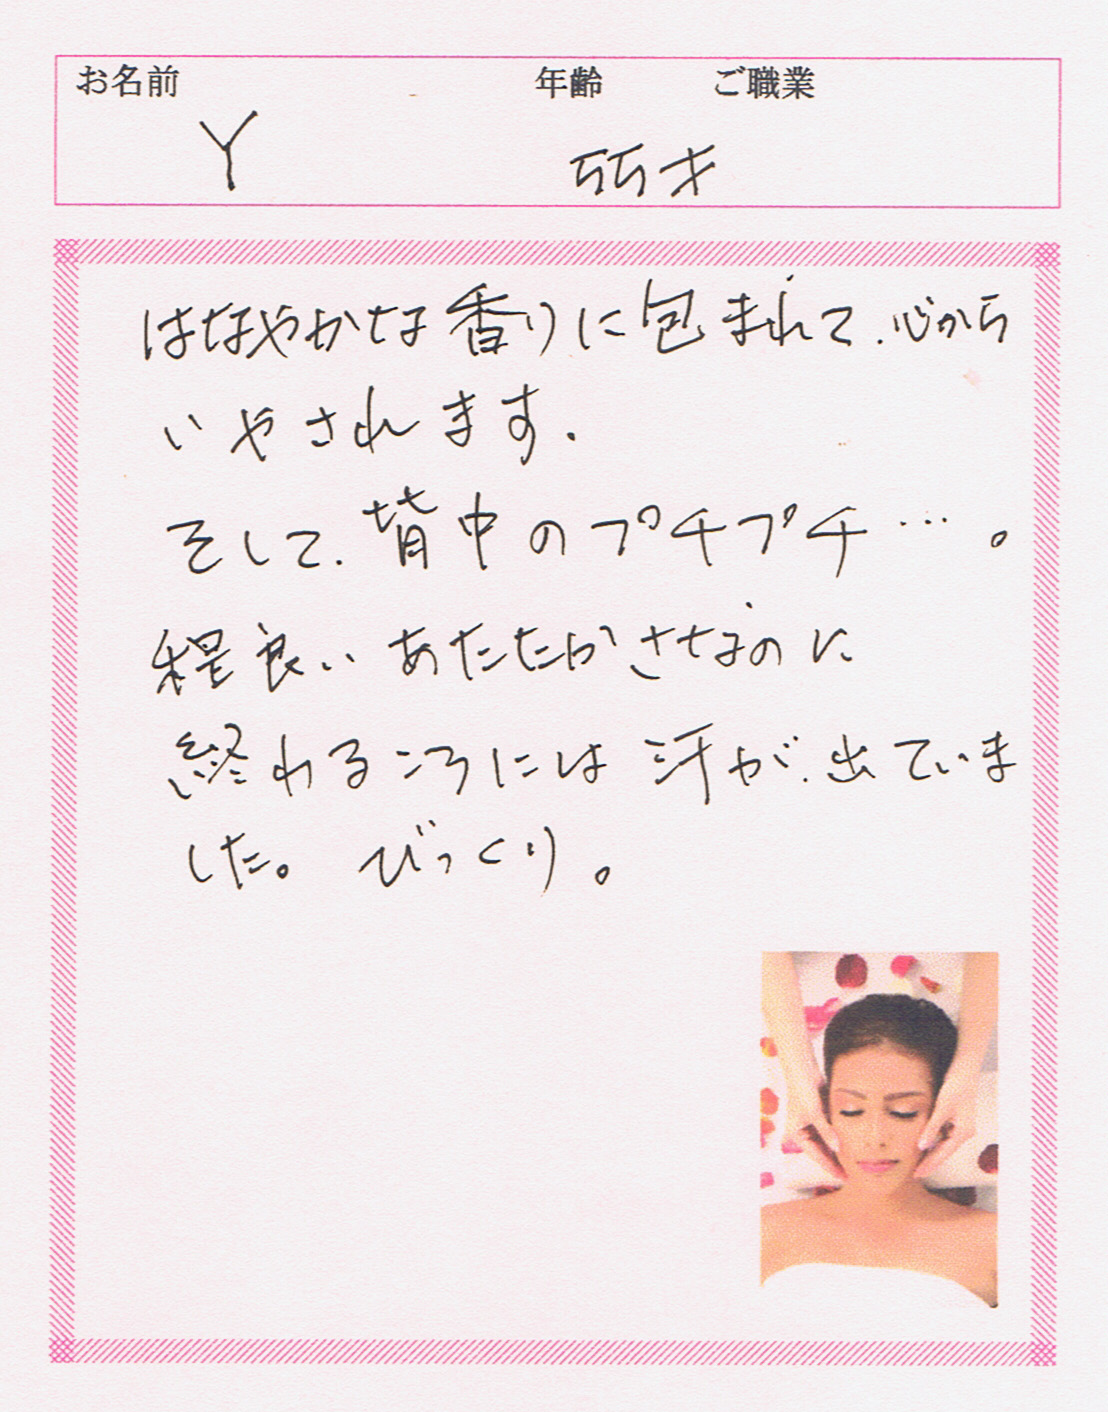 お名前 年齢 ご職業
Y 55才
はなやかな香りに包まれて、心から
いやされます。
そして、背中のプチプチ…。
程良いあたたかさなのに
終わるころには汗が、出ていま
した。びっくり。